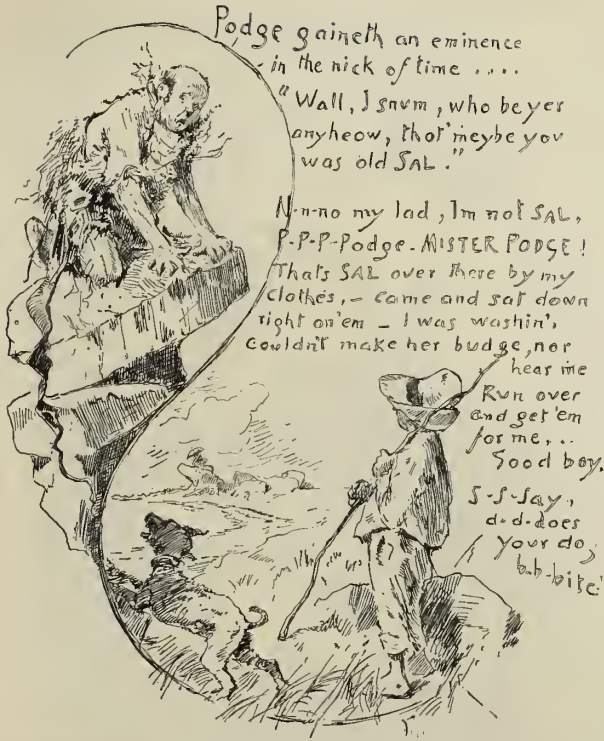 Podge gaineth an eminence
in the nick of time ....
"Wall, I snum, who be yer
anyheow, thot' meybe you
was old SAL."
N-n-no my lad, Im not SAL,
P-P-P-Podge - MISTER PODGE!
Thats SAL over there by my
clothes, - came and sat down
right on 'em - I was washin',
Couldn't make her budge, nor
hear me
Run over
and get 'em
for me, ..
Good boy.
S-S-Say,
d-d-does
your do,
b-b-bite!